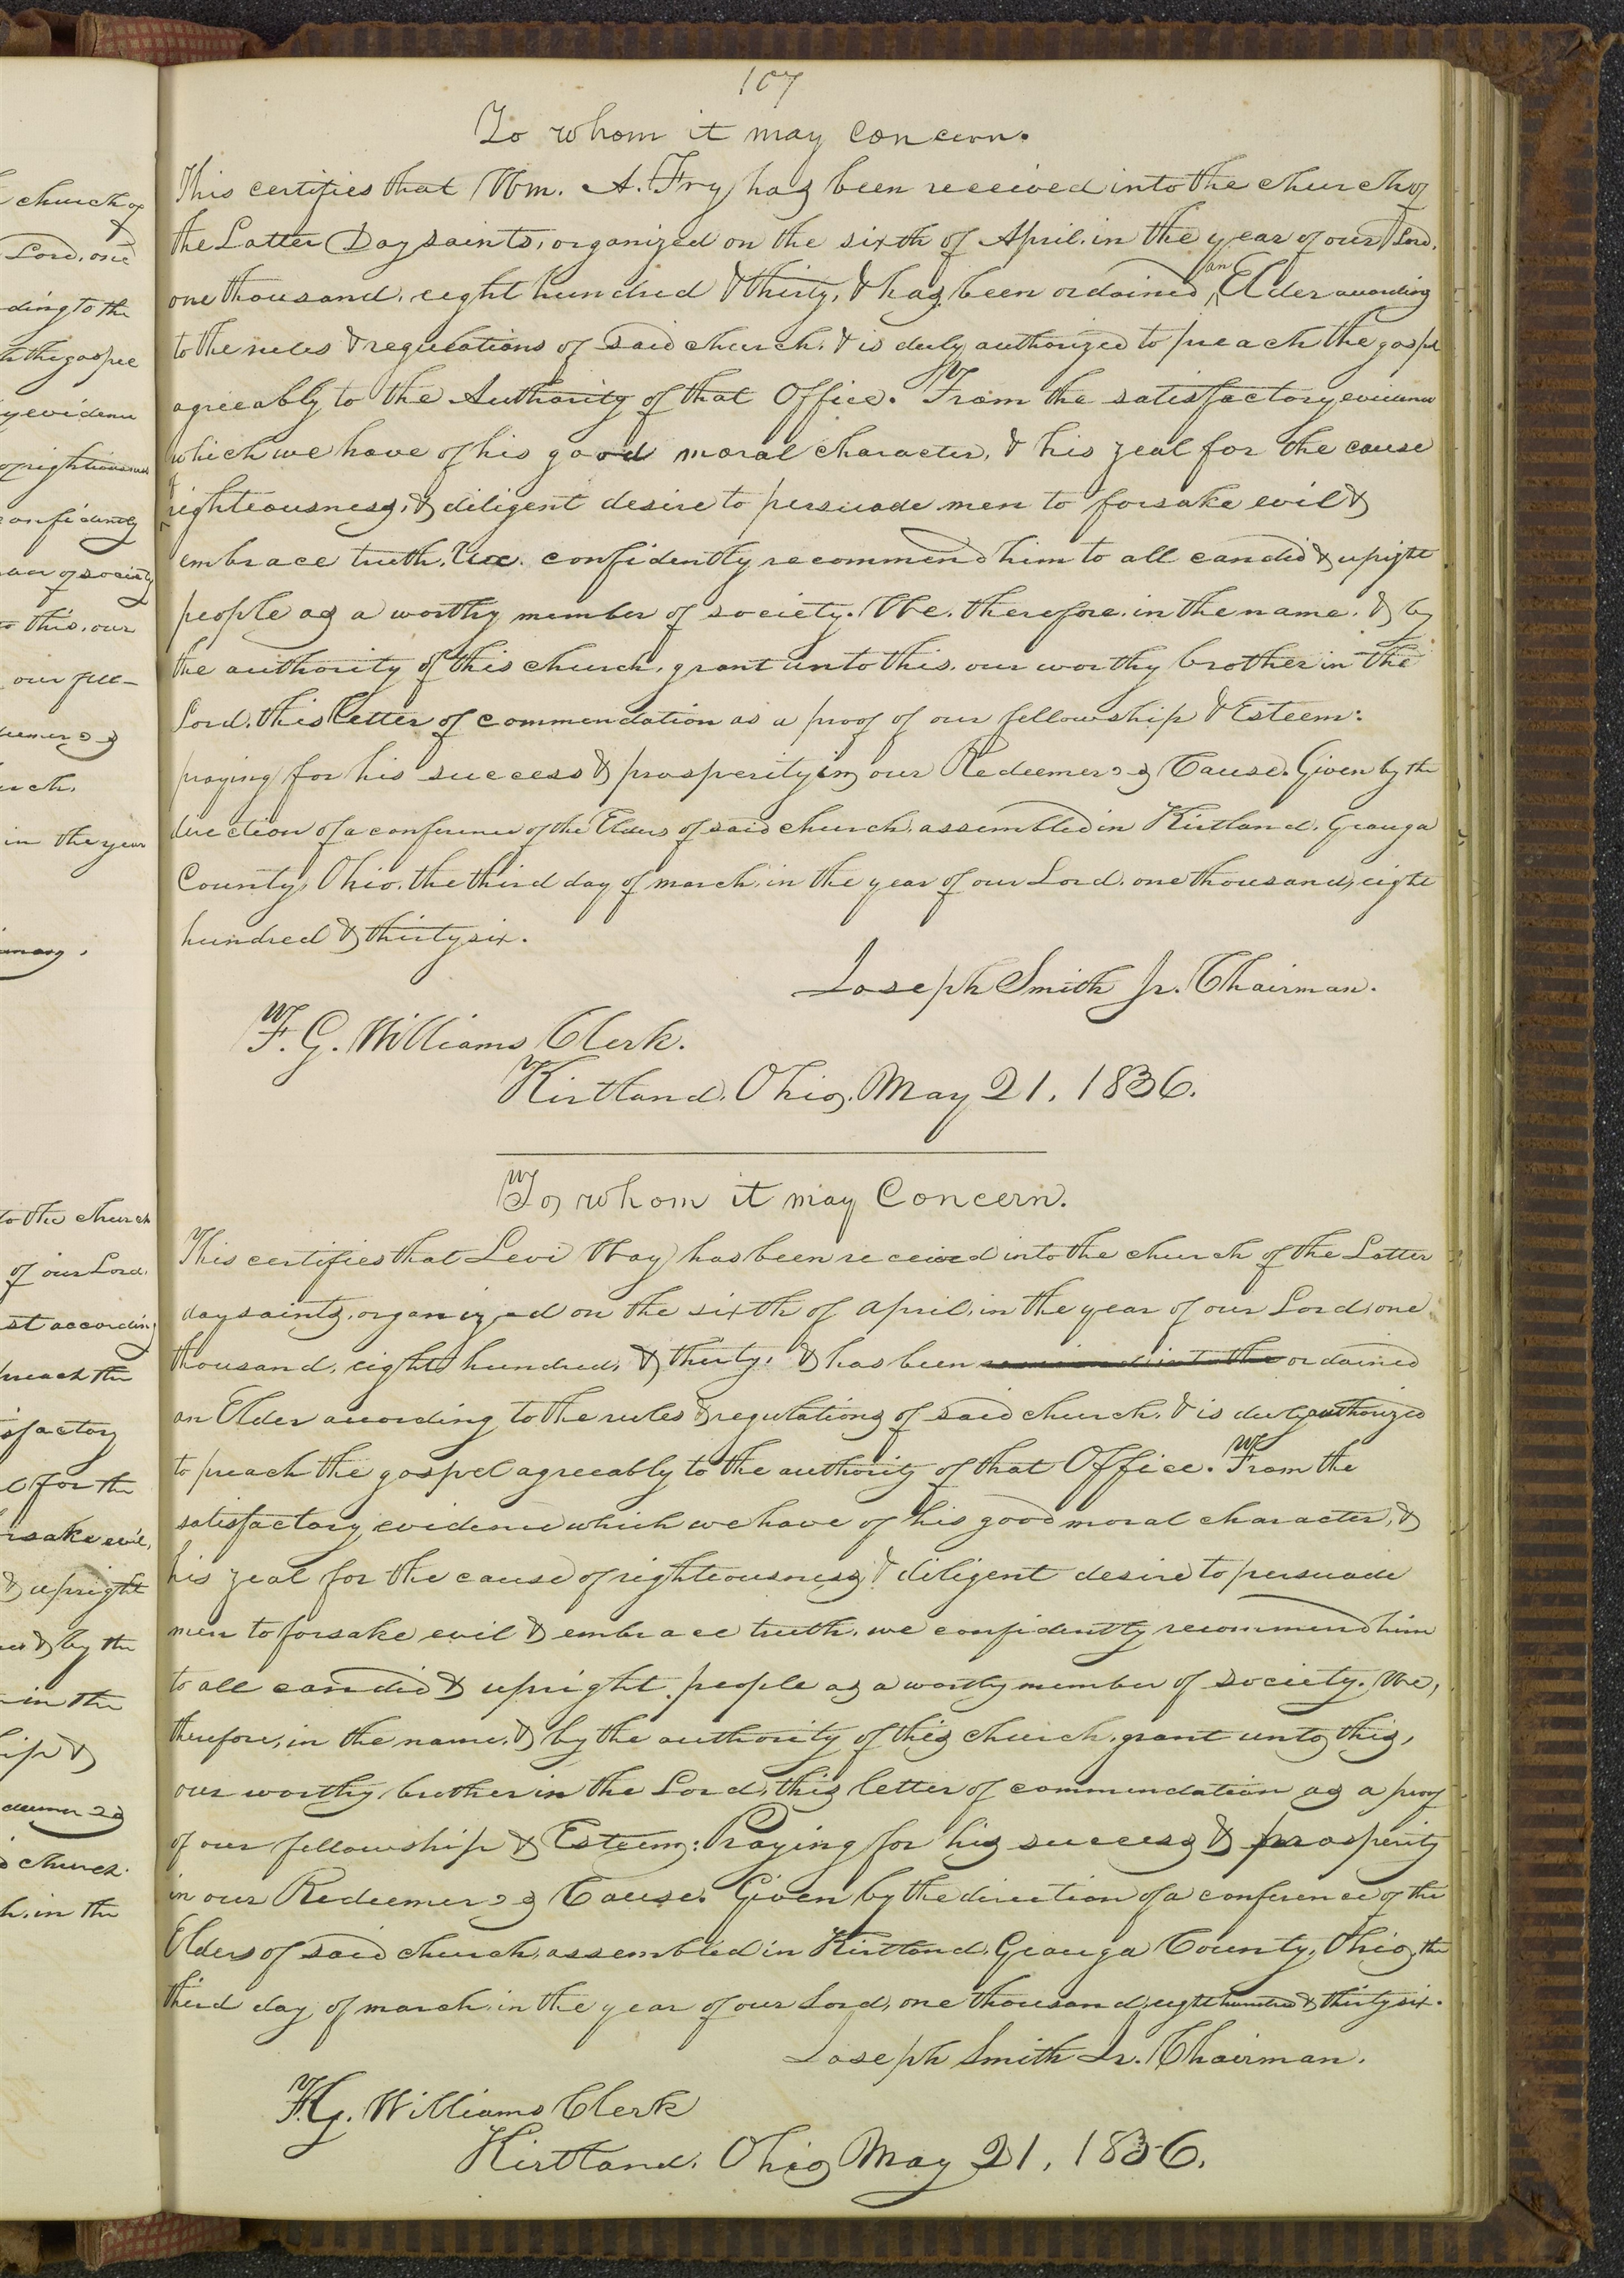 church of
&
Lord, one
ding to the
h the gospel
y evidence
of righteousness
confidently
ber of society
to this, our
our fell-
deemer's
urch,
in the year
to the church
of our Lord,
st according
preach the
isfactory
l for the
rsake evil,
& upright
& by the
in the
hip &
deemer's
d church.
h, in the
107
To whom it may Concern.
This certifies that Wm. A. Fry has been received into the church of
the Latter Day saints, organized on the sixth of April, in the year of our Lord,
one thousand, eight hundred & thirty, & has been ordained an Elder according
to the rules & regulations of said church, & is duly authorized to preach the gospel
agreeably to the Authority of that Office. From the satisfactory evidence
which we have of his good moral character, & his zeal for the cause
of righteousness, & diligent desire to persuade men to forsake evil &
embrace truth, We confidently recommend him to all candid & upright
people as a worthy member of society. We, therefore, in the name, & by
the authority of this church, grant unto this, our worthy brother in the
Lord, this letter of commendation as a proof of our fellowship & Esteem:
praying for his success & prosperity in our Redeemer's Cause. Given by the
direction of a conference of the Elders of said church, assembled in Kirtland, Geauga
County, Ohio, the third day of march, in the year of our Lord, one thousand, eight
hundred & thirty six.
Joseph Smith Jr. Chairman.
F. G. Williams Clerk.
Kirtland, Ohio, May 21, 1836.
To whom it may Concern.
This certifies that Levi Way has been received into the church of the Latter
day saints, organized on the sixth of april, in the year of our Lord, one
thousand, eight hundred, & thirty, & has been received into the ordained
an Elder according to the rules & regulations of said church, & is duly authorized
to preach the gospel agreeably to the authority of that Office. From the
satisfactory evidence which we have of his good moral character, &
his zeal for the cause of righteousness, & diligent desire to persuade
men to forsake evil & embrace truth, we confidently recommend him
to all candid & upright people as a worthy member of society. We,
therefore, in the name, & by the authority of this church, grant unto this,
our worthy brother in the Lord, this letter of commendation as a proof
of our fellowship & Esteem: Praying for his success & prosperity
in our Redeemer's Cause. Given by the direction of a conference of the
Elders of said church, assembled in Kirtland, Geauga County, Ohio, the
third day of march, in the year of our Lord, one thousand, eight hundred & thirty six.
Joseph Smith Jr. Chairman.
F. G. Williams Clerk
Kirtland, Ohio, May 21, 1836.